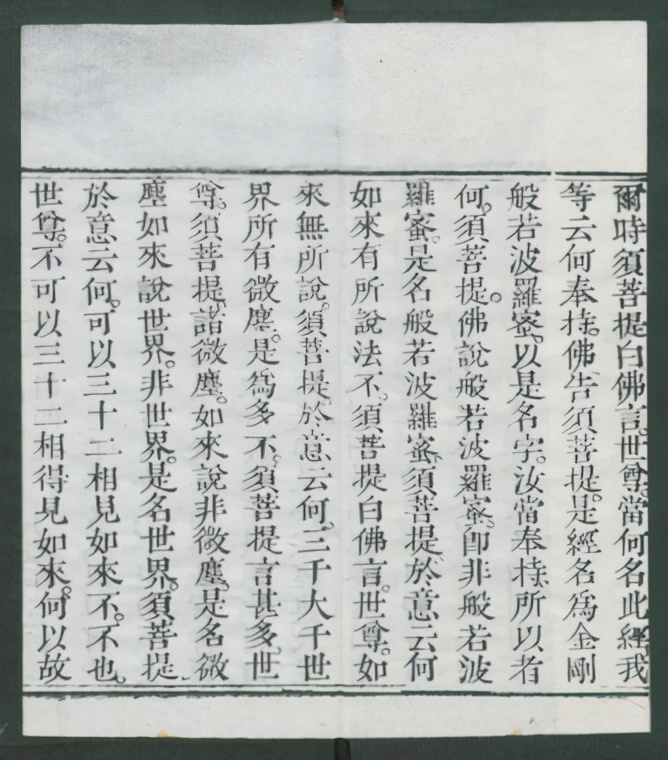 爾時須菩提白佛言。世尊。當何名此經。我
等云何奉持。佛告須菩提。是經名爲金剛
般若波羅蜜。以是名字。汝當奉持。所以者
何。須菩提。佛說般若波羅蜜。卽非般若波
羅蜜。是名般若波羅蜜。須菩提。於意云何
如來有所說法不。須菩提白佛言。世尊。如
來無所說。須菩提。於意云何。三千大千世
界所有微塵。是爲多不。須菩提言。甚多。世
尊。須菩提。諸微塵。如來說非微塵。是名微
塵。如來說世界。非世界。是名世界。須菩提
於意云何。可以三十二相見如來不。不也。
世尊。不可以三十二相得見如來。何以故